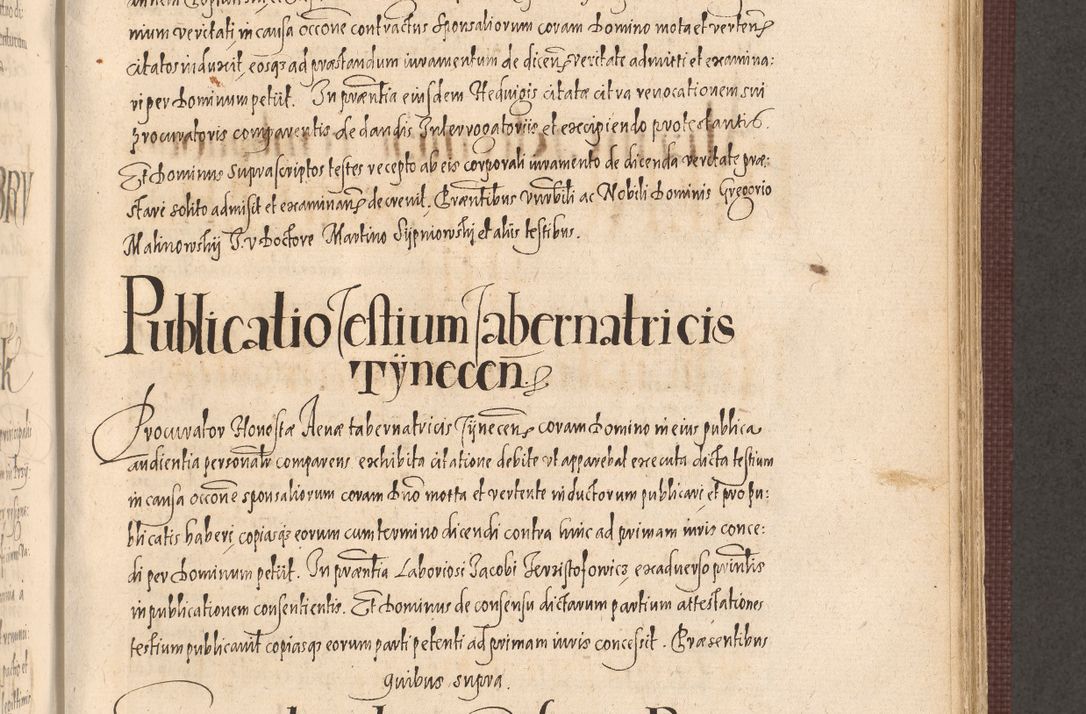 nium veritati in causa occone contractus sponsaliorum coram Domino mota et verten
citatos induxit, eosq ad præstandum iuramentum de dicen veritate admitti et examina:
ri per Dominum petiit. In præntia eiusdem Heduigis citatæ citra reuocationem sui
procuratoris comparentis de dandis Interrogatoriis et excipiendo protestantis.
Et Dominus suprascriptos testes recepto ab eis corporali iuramento de dicenda veritate præ:
stari solito admisit et examinan decreuit. Præntibus Vnrbili ac Nobili Dominis Gregorio
Malinowskij J. v Doctore Martino Sijpniowskij et aliis testibus.
Publicatio Testium Tabernatricis
Tÿnecen
Procurator Honestæ Aenæ tabernatricis Tÿnecen coram Domino in eius publica
audientia personalr comparens exhibita citatione debite vt apparebat executa dicta testium
in causa occone sponsaliorum coram Dno mota et vertente inductorum publicari et pro pu:
blicatis haberi, copiasq eorum cum termino dicendi contra hinc ad primam iuris conce:
di per Dominum petiit. In præntia Laboriosi Jacobi Krzistofowicz ex aduerso prinlis
in publicationem consentientis. Et Dominus de consensu dictarum partium attestationes
testium publicauit copiasq eorum parti petenti ad primam iuris concessit. Præsentibus
quibus supra.